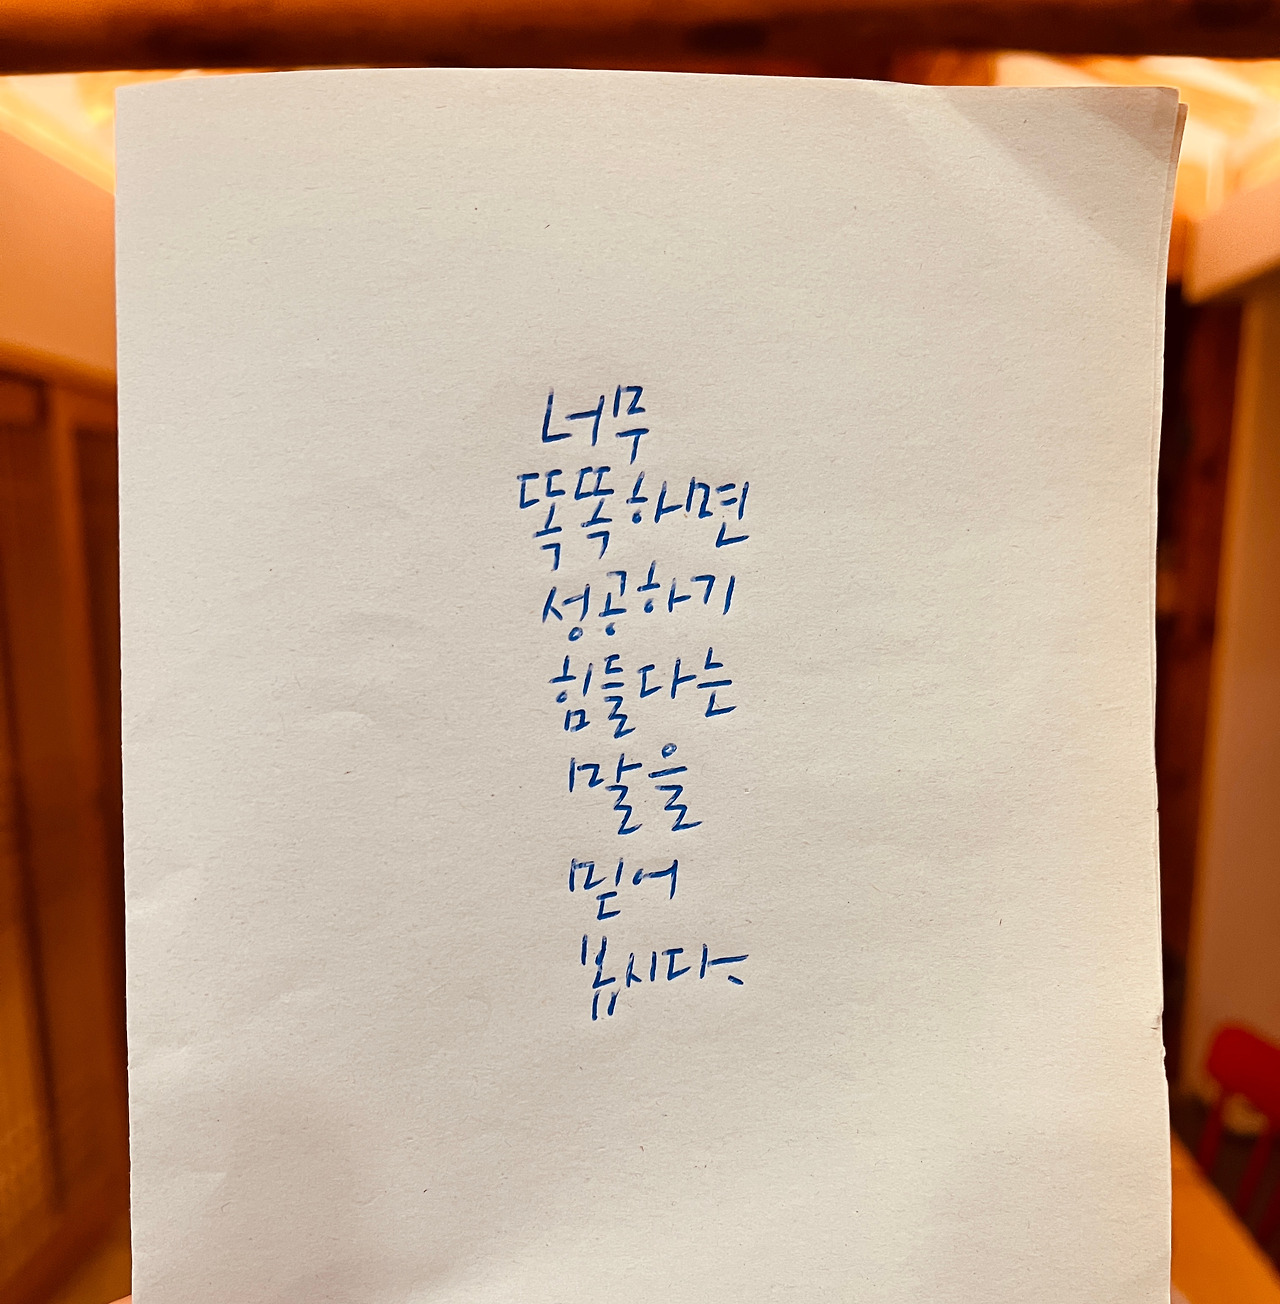 너무
똑똑하면
성공하기
힘들다는
말을
믿어
봅시다.